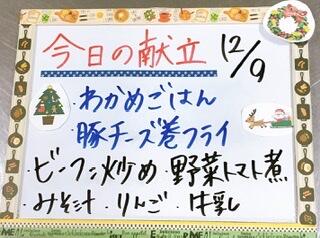 今日の献立 12/9
・わかめごはん
・豚チーズ巻フライ
・ビーフン炒め・野菜トマト煮
・みそ汁・りんご・牛乳